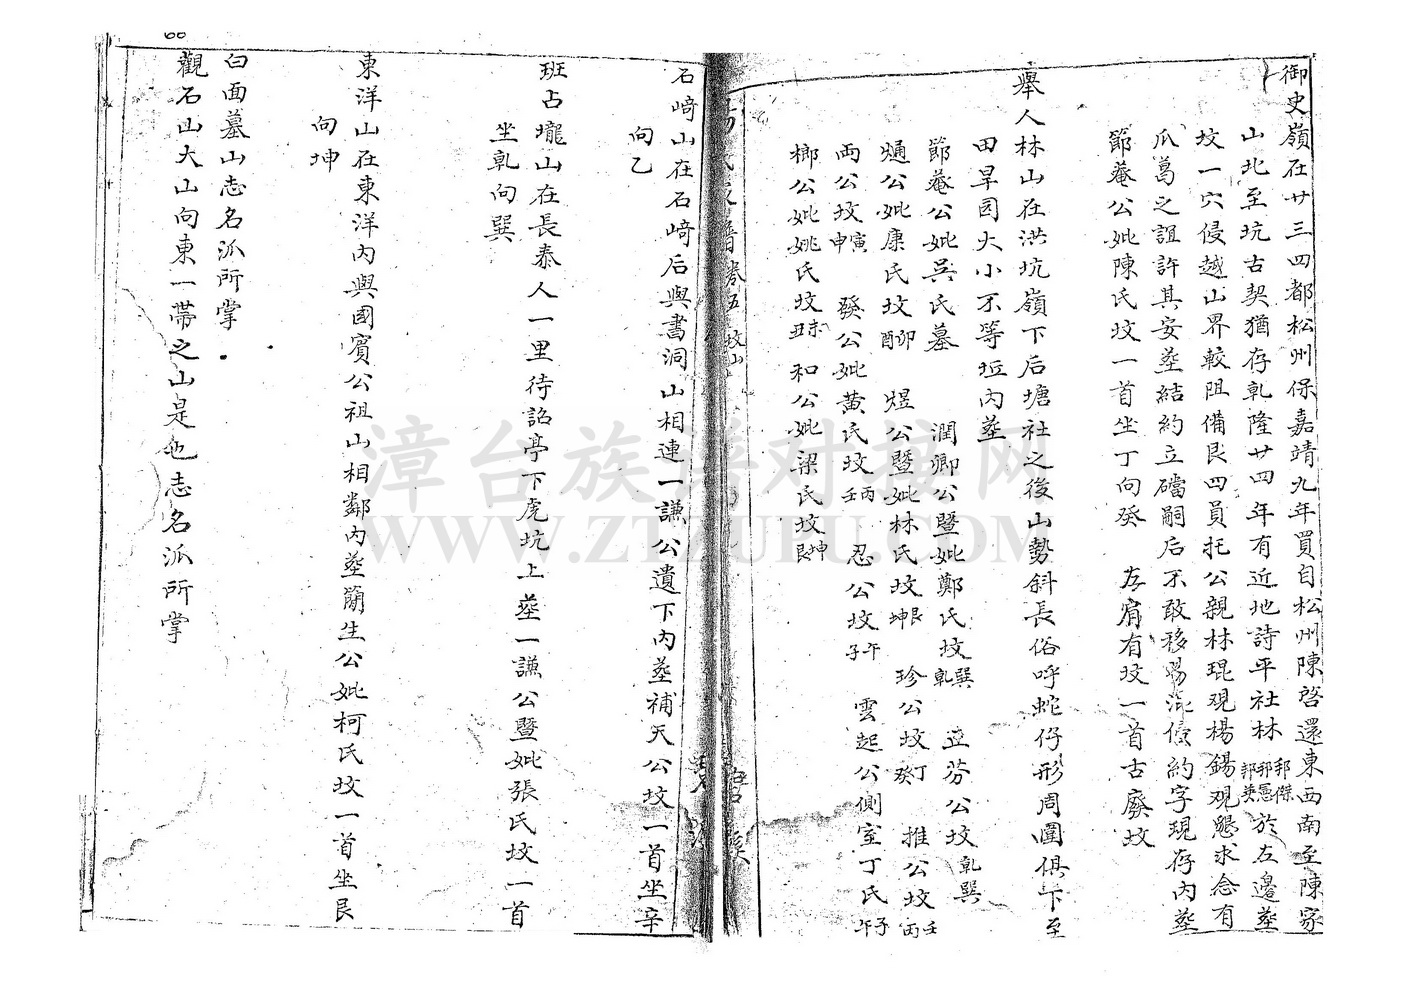 御史嶺在廿三四都松州保嘉靖九年買自松州陳啓還東西南至陳家
山北至坑古契猶存乾隆廿四年有近地詩平社林邦傑邦憲邦英於左邊塟
坟一穴侵越山界較阻備艮四員托公親林琨观楊錫观懇求念有
瓜葛之誼許其安塟結約立礌嗣后不敢移易混侵約字現存内塟
節菴公妣陳氏坟一首坐丁向癸 左肩有坟一首古廢坟
舉人林山在洪坑嶺下后塘社之後山勢斜長俗呼蛇仔形周圍俱下至
田旱园大小不等坵内塟
節菴公妣吳氏墓 潤卿公暨妣鄭氏坟巽乾 立芬公坟乾巽
熥公妣康氏坟卯酉 煜公暨妣林氏坟艮坤 珍公坟丁癸 推公坟壬丙
両公坟寅申 發公妣黄氏坟丙壬 忍公坟午子 雲起公側室丁氏子午
榔公妣姚氏坟未丑 和公妣梁氏坟坤艮
楊氏家譜 卷五 坟山
石﨑山在石﨑后與書洞山相連一謙公遺下内塟補天公坟一首坐辛
向乙
班占壠山在長泰人一里待詔亭下虎坑上塟一謙公暨妣張氏坟一首
坐乹向巽
東洋山在東洋内與國賓公祖山相鄰内塟簡生公妣柯氏坟一首坐艮
向坤
白面墓山志名派所掌
觀石山大山向東一帶之山是也志名派所掌
漳台族谱对接网
WWW.ZTZUPU.COM